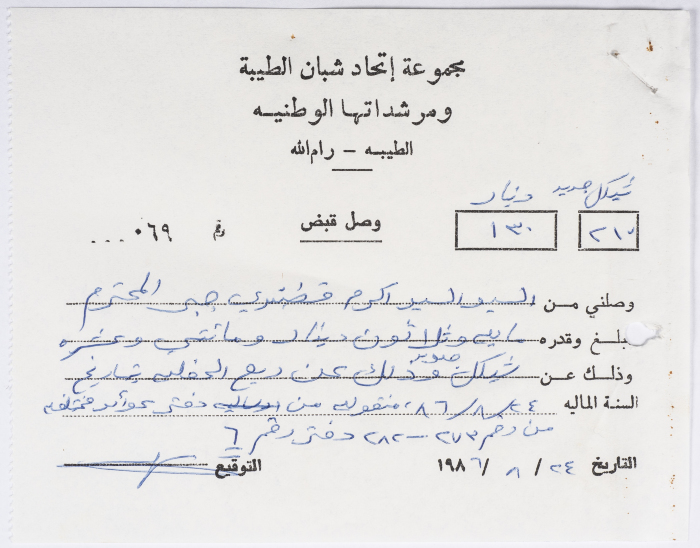 مجموعة إتحاد شبان الطيبة
ومرشداتها الوطنيه
الطيبه - رام الله
شيكل جديد دينار
٢١٠ ١٣٠
وصل قبض
رقم ٠٦٩...
وصلني من السيد السيد اكرم المحترم
مبلغ وقدره مايه وثلاثون دينار ومائتي وعشره
شيكل جديد
وذلك عن وذلك عن ريع الحفله بتاريخ
السنة الماليه ٨٦/٨/٢٤ منقوله من دفتر عوائد مختلفه
من رقم ٢٧٣-٢٨٢ دفتر رقم ٦
التاريخ ٢٤ / ٨ / ١٩٨٦ التوقيع